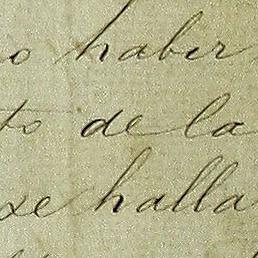 o haber
to de la
se halla